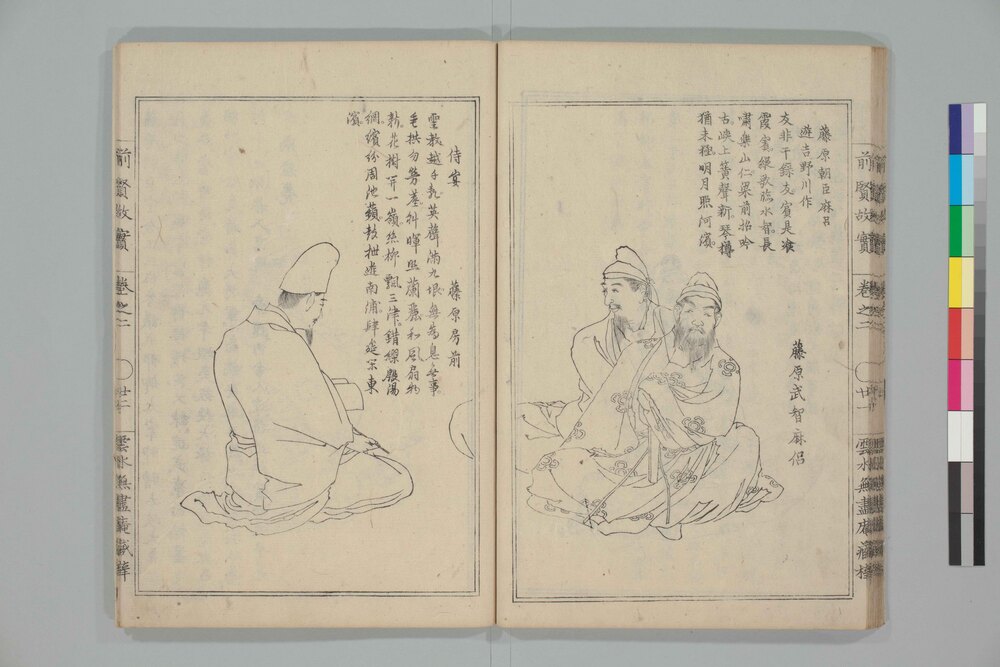 前賢故實
卷之二
廿一
雲水無盡庵藏梓
藤原朝臣麻呂
遊吉野川作
友非干錄友賓是飡
霞賓縱歌臨水智長
嘯樂山仁梁前招吟
古峽上簧聲新琴樽
猶未極明月照河濱
藤原武智麻侶
侍宴 藤原房前
聖教越千祀英聲滿九垠無爲息無事
垂拱勿勞塵斜暉照蘭麗和風扇物
新花樹開一嶺絲柳飄三津錯繆殷湯
網繽紛周池蘋鼓枻遊南浦肆筵樂東
濱
前賢故實
卷之二
雲水無盡庵藏梓